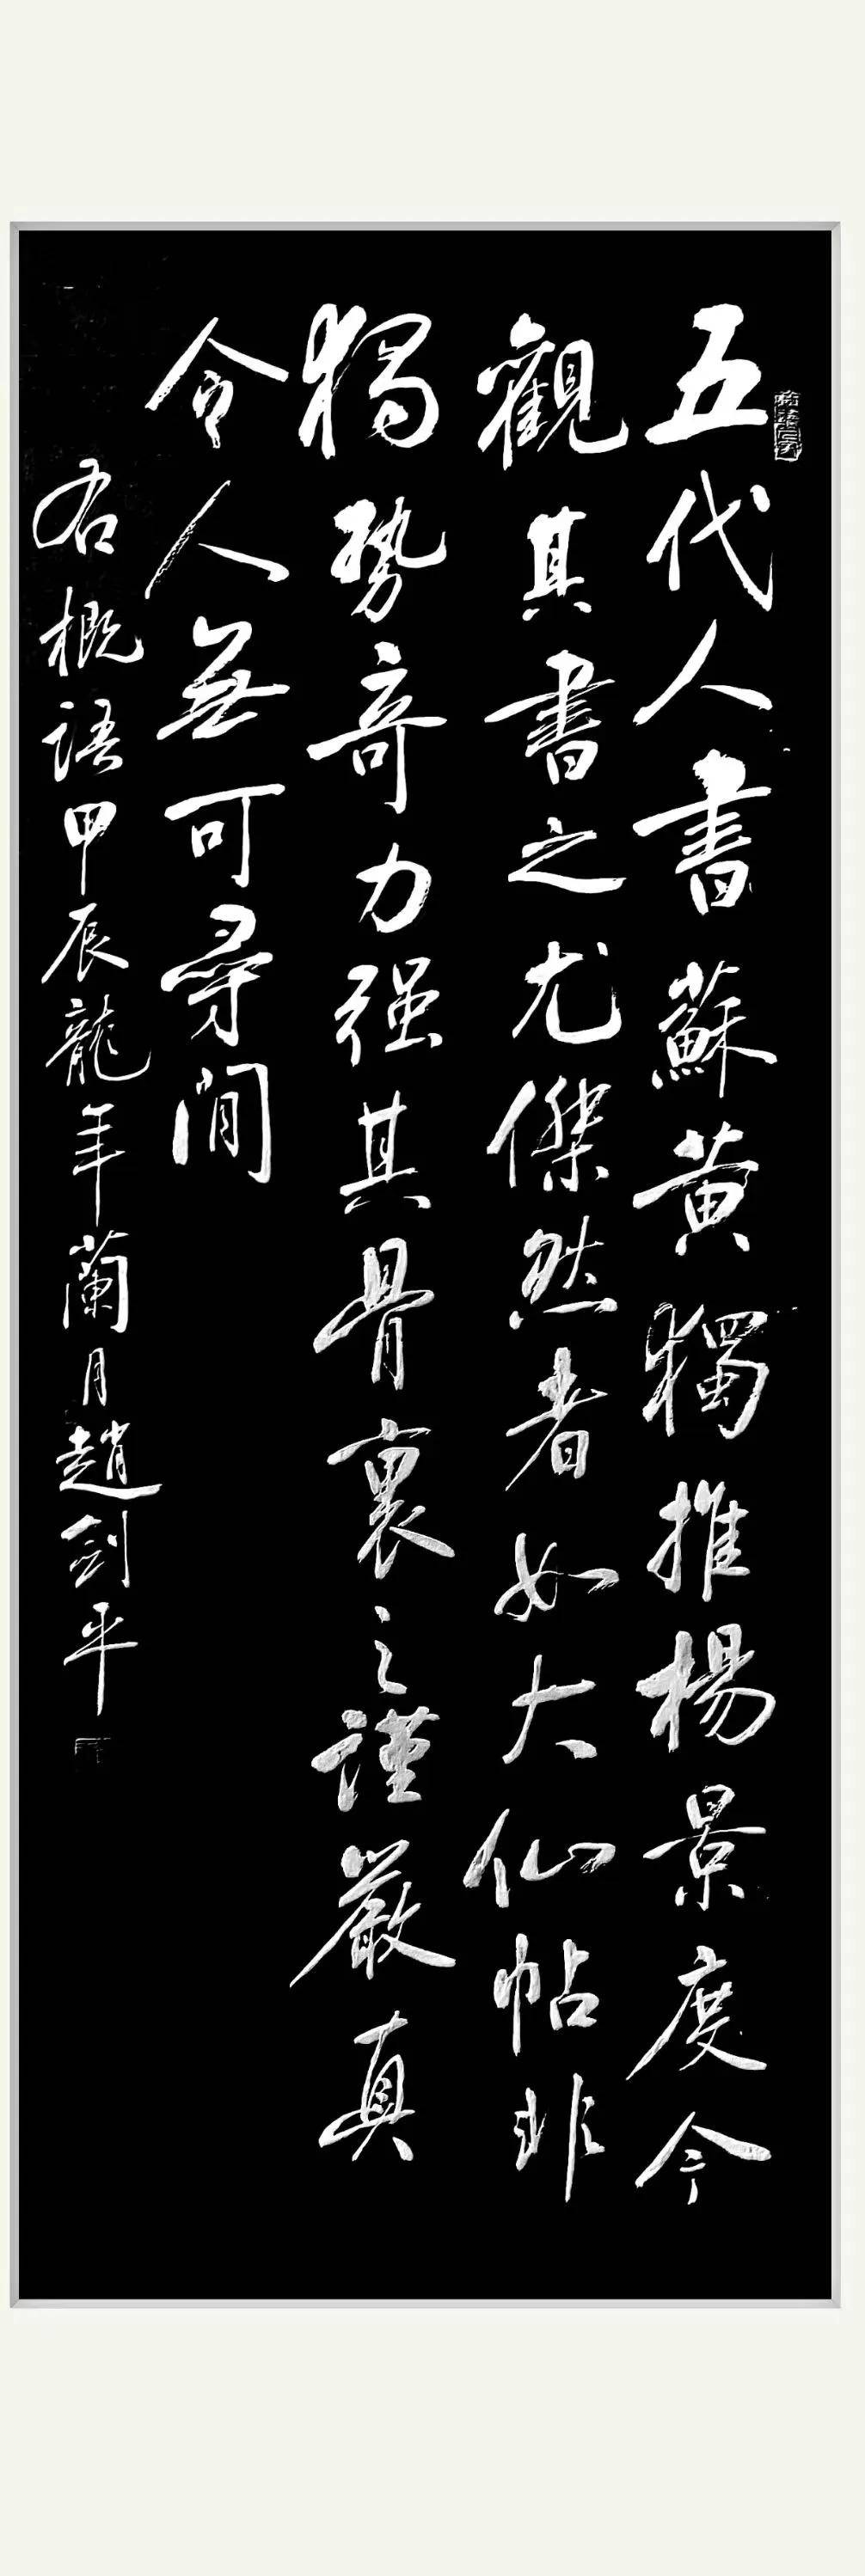 五代人書蘇黄獨推楊景度今
觀其書之尤傑然者如大仙帖非
獨勢奇力强其骨裏之謹嚴真
令人無可尋間
右概語甲辰龍年蘭月趙剑平